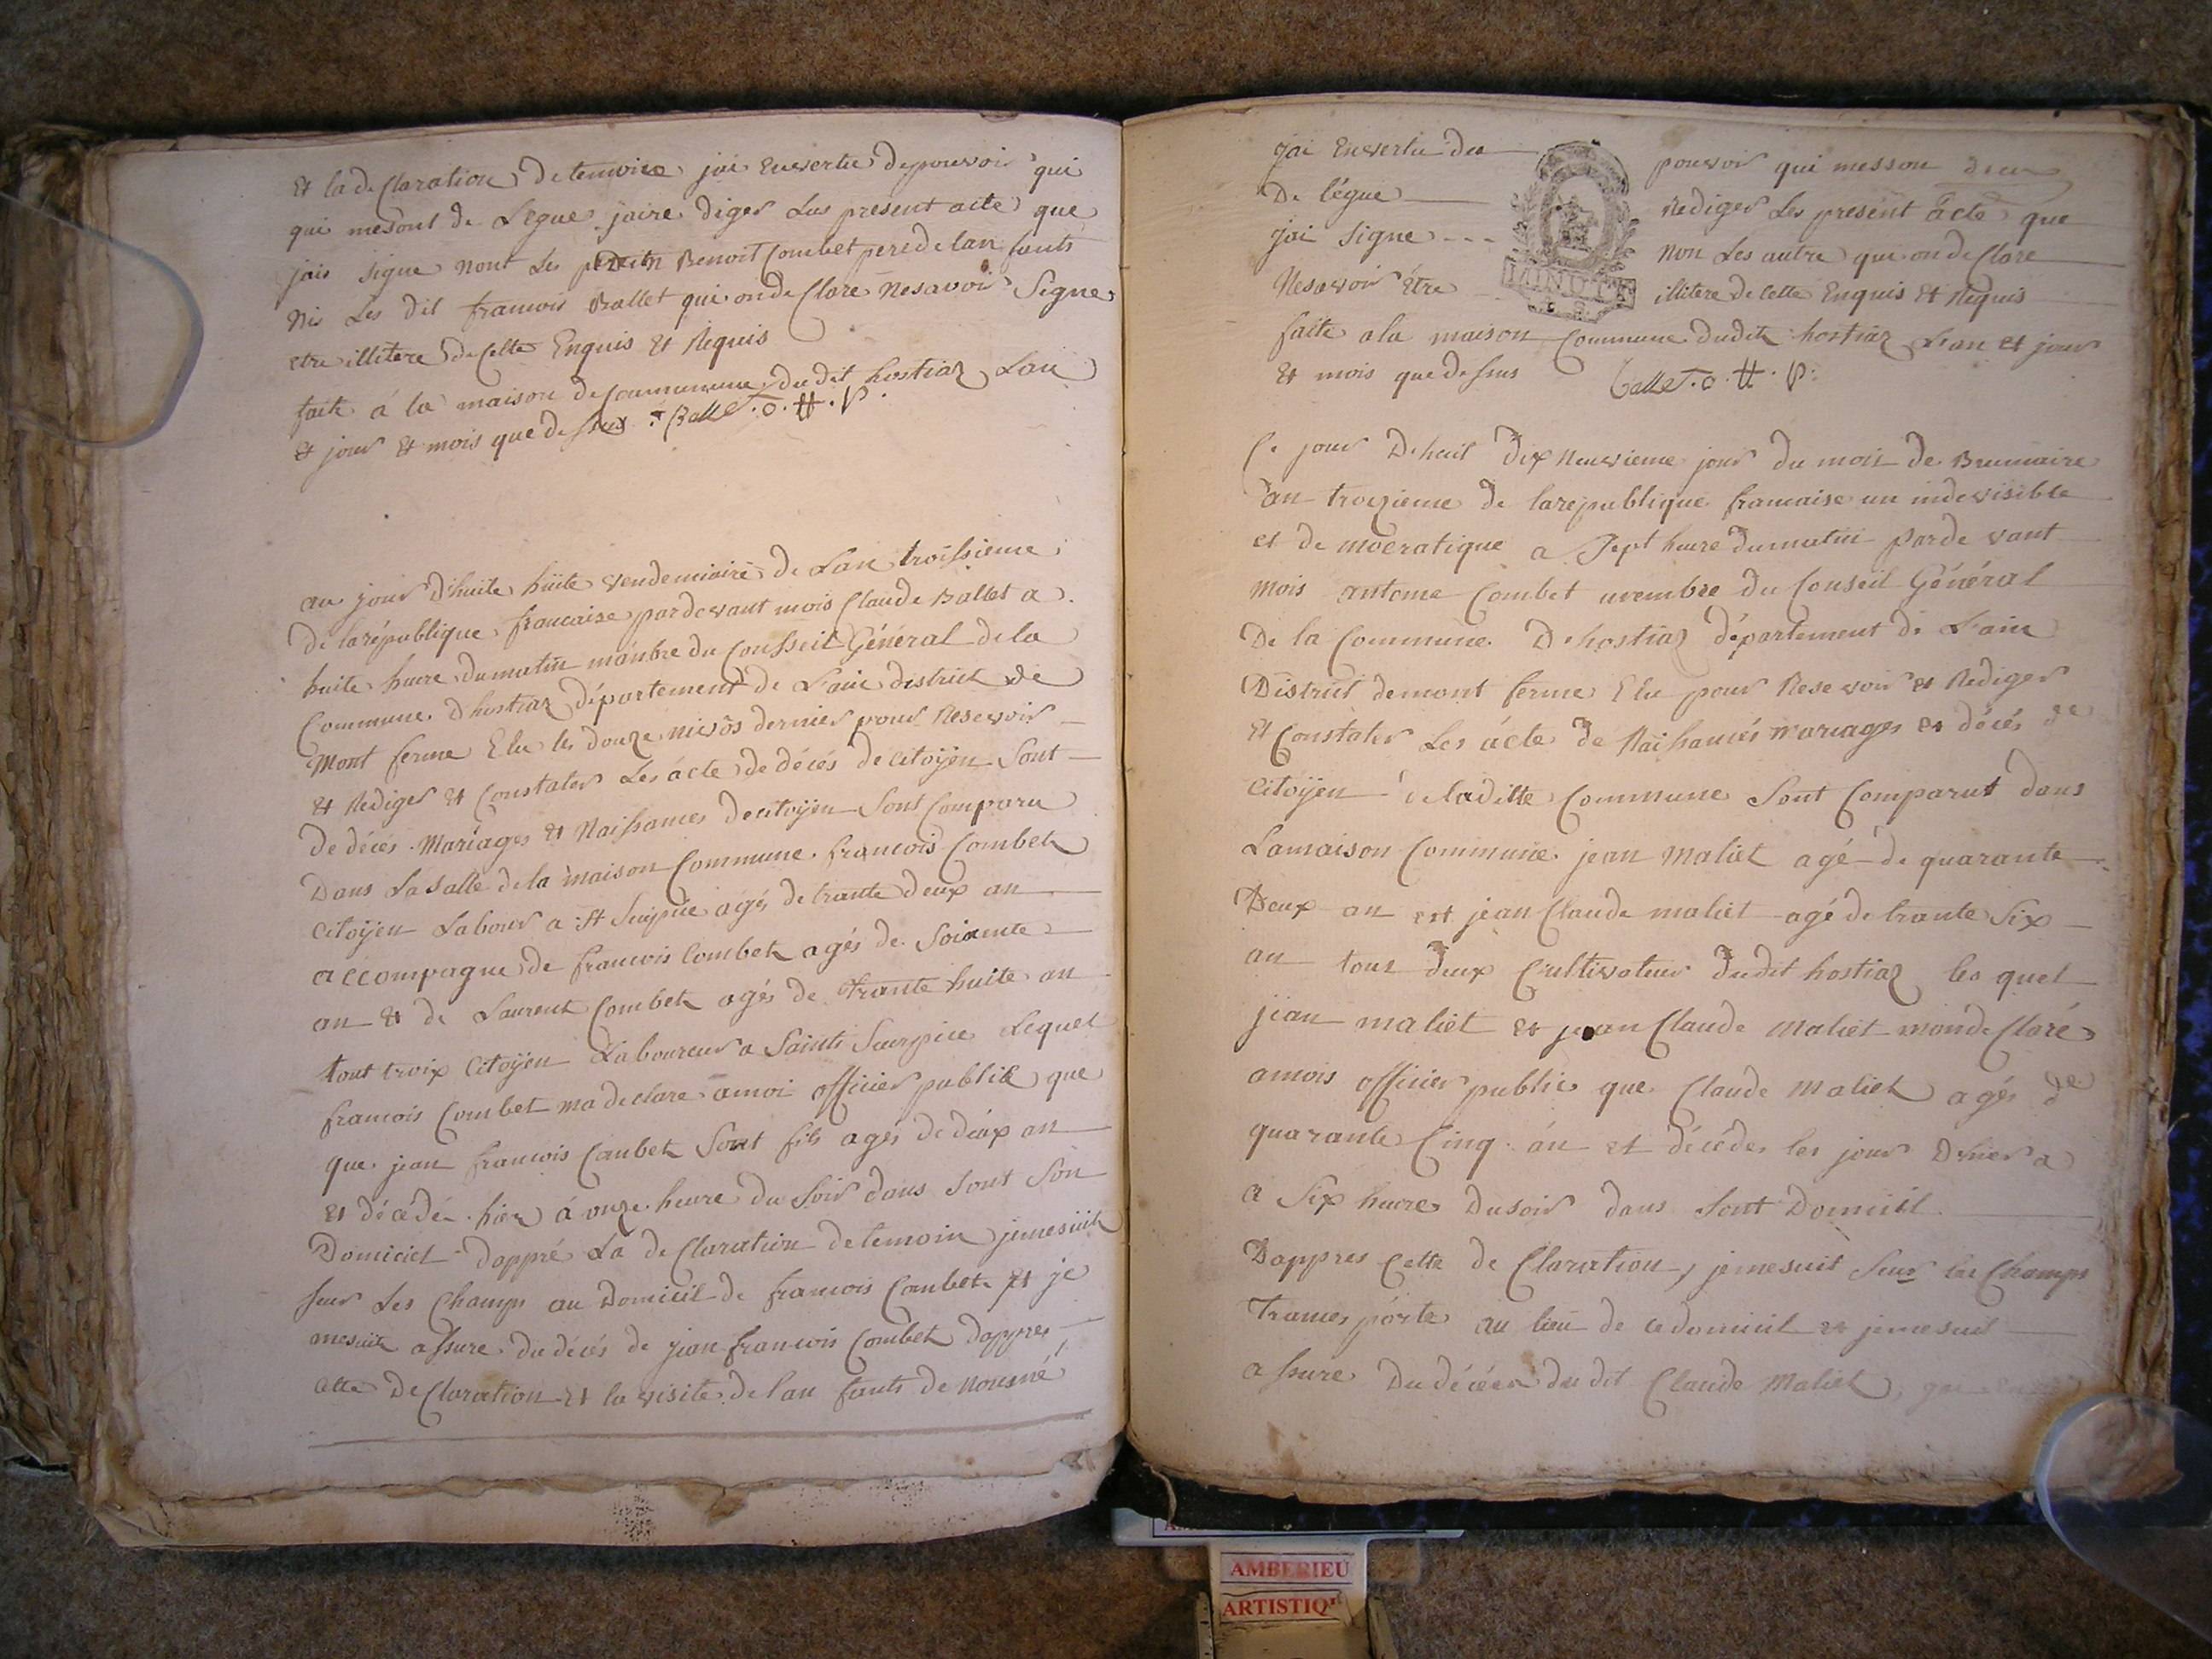 et la de Claration de temoire jai en vertu de pouvoir qui
qui mesont de Legue jaire diger Les present acte que
jais signe nont Les Benoit Combet pere de lan fants
Nis Les dit francois Ballet qui on de Clare Nesavoir Signe
etre illitere de Cette Enquis et Requis
faite á la maison de Commune du dit hostiaz Lan
et jour et mois que dessus Ballet. o. H. p.
au jour d'huite huite vendemiaire de Lan troissieme
de la république francaise pardevant mois Claude Ballet a
huite heure du matin manbre du Consseil Général de la
Commune d'hostiaz département de Lain district de
Mont ferme Elu les douze nivôs dernier pour Resevoir
et Rediger et Constater Les ácte de décés de Citoÿen Sont
de décés Mariages et Naissances de citoÿen Sont Comparu
Dans La Salle de la maison Commune francois Combet
Citoÿen Labour a St Surpice agés de trante deux an
accompagne de francois Combet agés de Soixante
an et de Laurent Combet agés de trante huite an
tout troix Citoÿen Laboureur a Saints Surpice Lequel
francois Combet ma declare amoi officier public que
que jean francois Combet Sont fils agés de deux an
et décédée hier á onze heure du Soir dans Sont Son
Domiciel dappré La de Claration de temoin jemesuit
seur Les Champs au Domicil de francois Combet et je
mesuit assure du décés de jean francois Combet dappres
Cette de Claration et la visite de lan fants de Nousné
jai En vertu des pouvoir qui messon
De légue Rediger Les present ácte que
jai Signe --- non Les autre qui on de Clare
Nesavoir être illitere de Cette Enquis et Requis
MINUTE
faite ala maison Commune dudit hostiaz Lan et jour
et mois que dessus Ballet. o. H. p.
Ce jour D'huit Dix Neuvieme jour du mois de Brumaire
an troizieme de la république francaise un indevisible
et de mocratique a Sept heure du matin Parde vant
mois antoine Combet membre du Conseil Général
De la Commune D'hostiaz département de Lain
District de mont ferme Elu pour Resevoir et Rediger
et Constater Les ácte de Naissancés mariages et décés de
Citoÿen de laditte Commune Sont Comparut dans
La maison Commune jean Maliet agé de quarante
Deux an est jean Claude maliet agé de trante Six
an tout deux Cultivateur dudit hostiaz les quel
jean maliet et jean Claude Maliet mon de Claré
amois officier public que Claude Maliet agés de
quarante Cinq án et décédes les jour D'hier a
a Six heures Dusoir dans Sont Domicil
Dappres Cette de Claration, jemesuit Seur les Champs
Transporte au lieu de Ce domicil et jemesuit
assure Du décées du dit Claude Maliet
AMBERIEU
ARTISTIQ